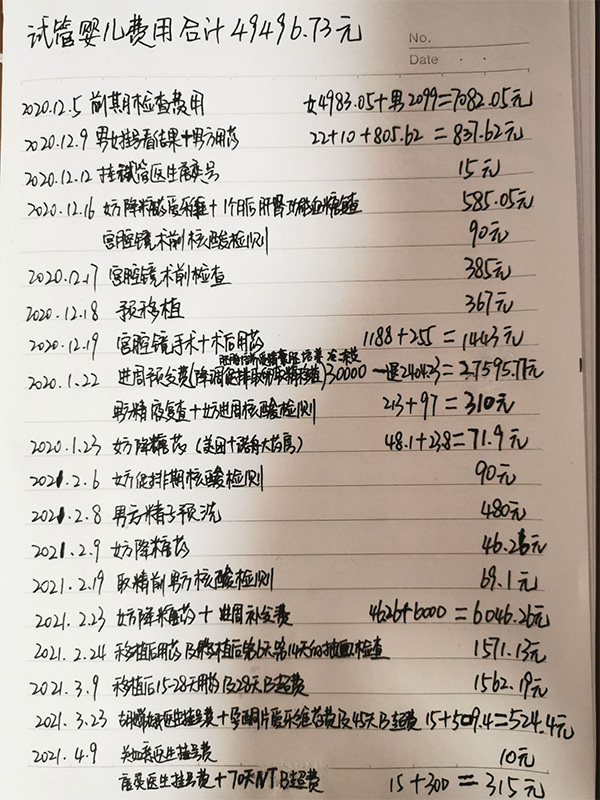 试管婴儿费用合计49496.73元
No.
Date · ·
2020.12.5 前期检查费用 女4983.05+男2099=7082.05元
2020.12.9 男女挂号看结果+男方用药 22+10+805.62=837.62元
2020.12.12 挂试管医生 号 15元
2020.12.16 女方降糖药爱乐维+1个月后肝肾功能血糖复查 585.05元
宫腔镜术前核酸检测 90元
2020.12.17 宫腔镜术前检查 385元
2020.12.18 预移植 367元
2020.12.19 宫腔镜手术+术后用药 1188+255=1443元
培养 冷冻
2020.1.22 进周预交费(降调促排取卵取精移植)30000-退2404.23=27595.77元
男精液复查+女进周核酸检测 213+97=310元
2020.1.23 女方降糖药(美团+ 大药房) 48.1+23.8=71.9元
2021.2.6 女方促排期核酸检测 90元
2021.2.8 男方精子预洗 480元
2021.2.9 女方降糖药 46.26元
2021.2.19 取精前男方核酸检测 69.1元
2021.2.23 女方降糖药+进周补交费 46.26+6000=6046.26元
2021.2.24 移植后用药及移植后第6天第14天的抽血检查 1571.13元
2021.3.9 移植后15-28天用药及28天B超费 1562.19元
2021.3.23 医生挂号费+ 爱乐维药费及45天B超费 15+509.4=524.4元
2021.4.9 医生挂号费 10元
医生挂号费+70天NT B超费 15+300=315元